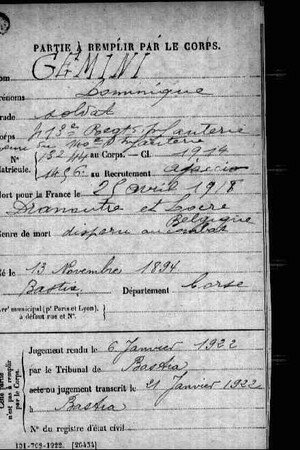 PARTIE À REMPLIR PAR LE CORPS.
Nom GÉMINI
Prénoms Dominique
Grade soldat
Corps 413e Regt Infanterie
venu du 140e Infanterie
N° 13244 au Corps. — Cl. 1914
Matricule. 1406 au Recrutement Ajaccio
Mort pour la France le 25 avril 1918
Dranoutre et Locre
Belgique
Genre de mort disparu au combat
Né le 13 Novembre 1894
Bastia Département Corse
Arr' municipal (p' Paris et Lyon),
à défaut rue et N°.
Cette partie
n'est pas à remplir
par le Corps.
Jugement rendu le 6 Janvier 1922
par le Tribunal de Bastia
acte ou jugement transcrit le 21 Janvier 1922
à Bastia
N° du registre d'état civil
101-708-1922. [26434]